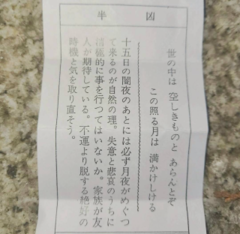 半凶
世の中は 空しきものと あらんとぞ
この照る月は 満かけしける
十五日の闇夜のあとには必ず月夜がめぐつ
て来るのが自然の理。失意と悲哀のうちに
的に事を行つてはいないか。家族が友
人が期待している。不運より脱する絶好の
時機と気を取り直そう。